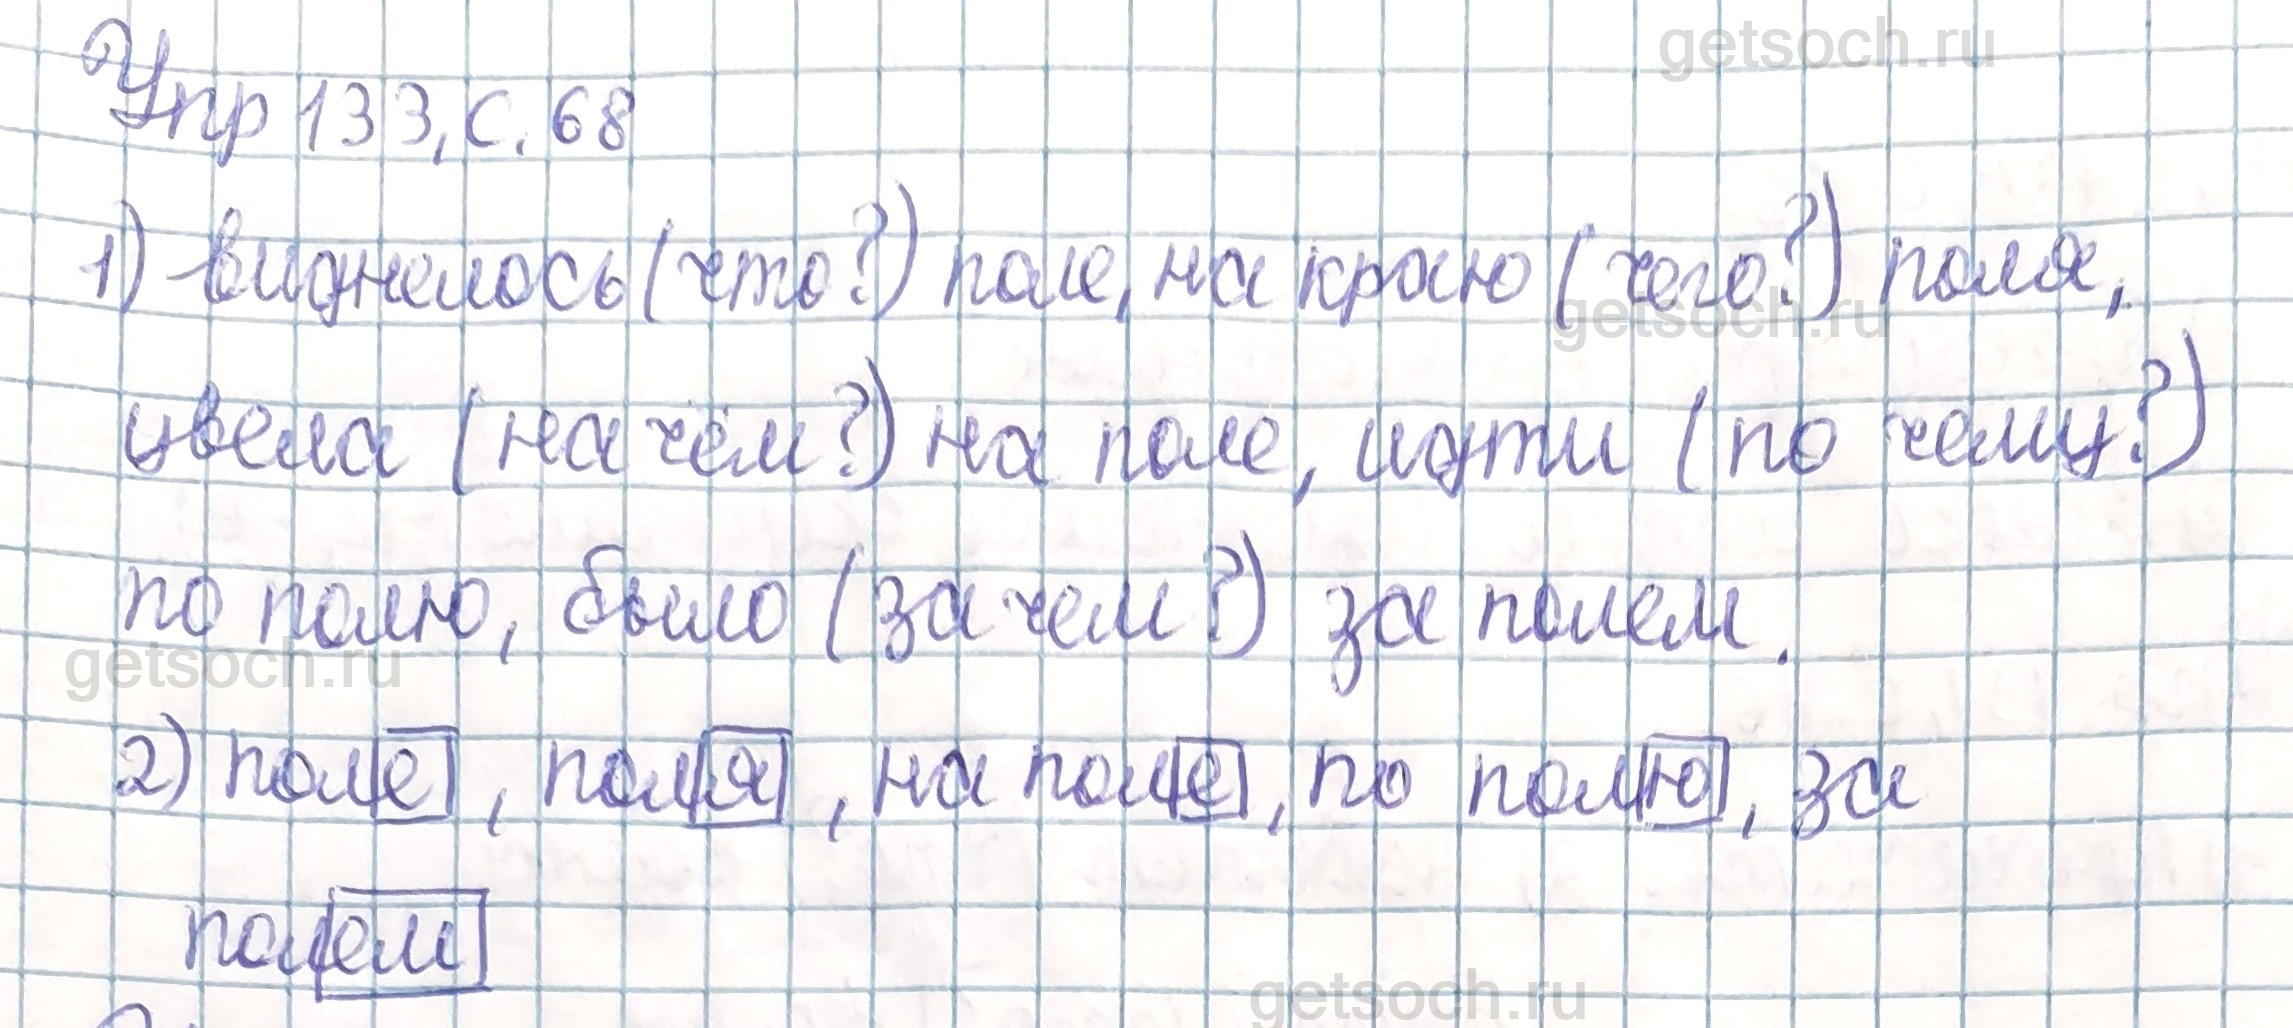 getsoch.ru
Упр 133, с. 68
1) виднелось (что?) поле, на краю (чего?) поля,
getsoch.ru
цвела (на чём?) на поле, идти (по чему?)
по полю, было (за чем?) за полем.
getsoch.ru
2) поле, поля, на поле, по полю, за
полем
getsoch.ru